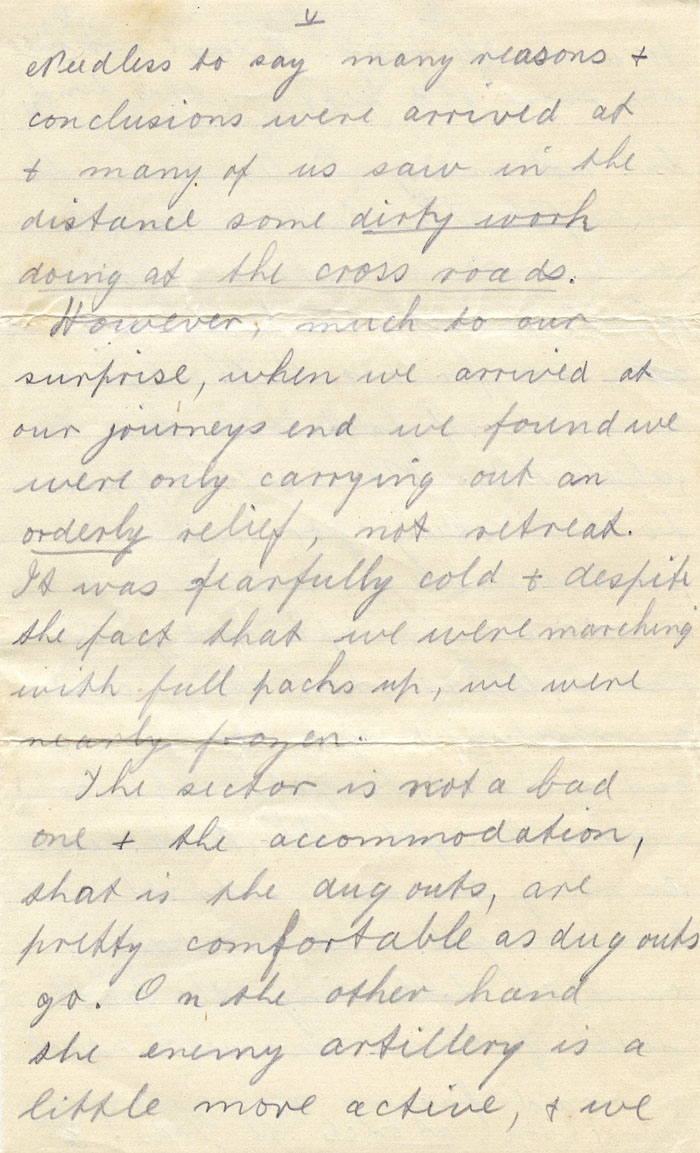 V
Needless to say many reasons +
conclusions were arrived at
+ many of us saw in the
distance some dirty work
doing at the cross roads.
However, much to our
surprise, when we arrived at
our journeys end we found we
were only carrying out an
orderly relief, not retreat.
It was fearfully cold + despite
the fact that we were marching
with full packs up, we were
nearly frozen.
The sector is not a bad
one + the accommodation,
that is the dug outs, are
pretty comfortable as dug outs
go. On the other hand
the enemy artillery is a
little more active, + we